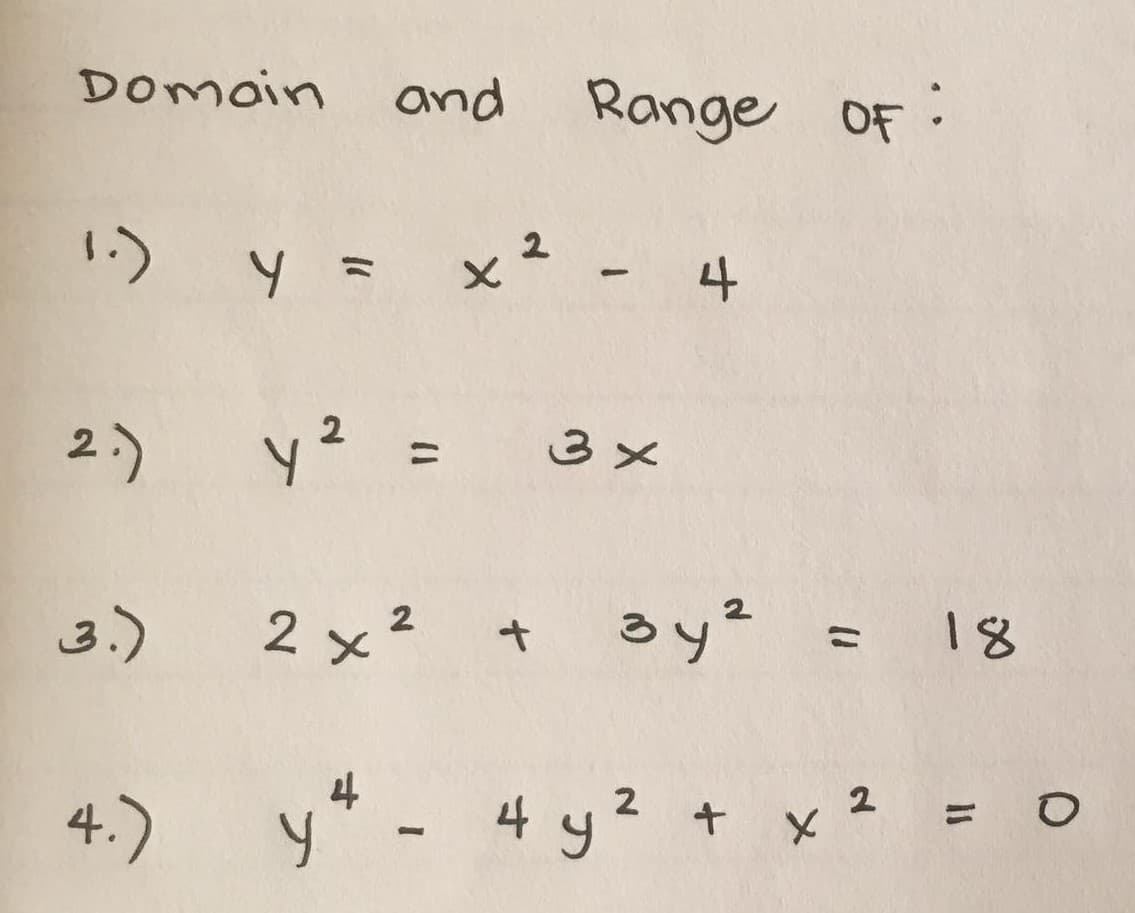 Domain and Range OF :
1.) y = x² - 4
2.) y² = 3x
3.) 2x² + 3y² = 18
4.) y⁴ - 4y² + x² = 0